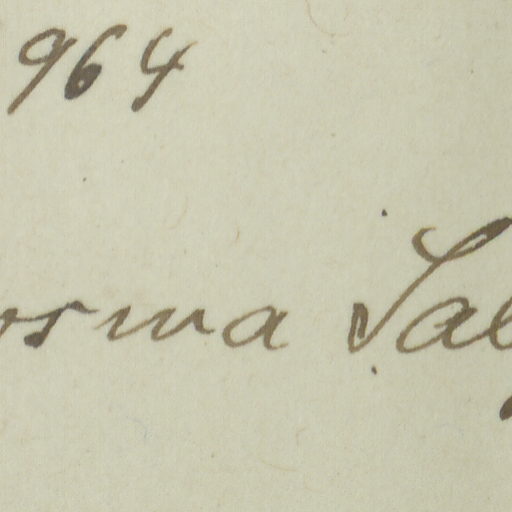 964
osma Sal